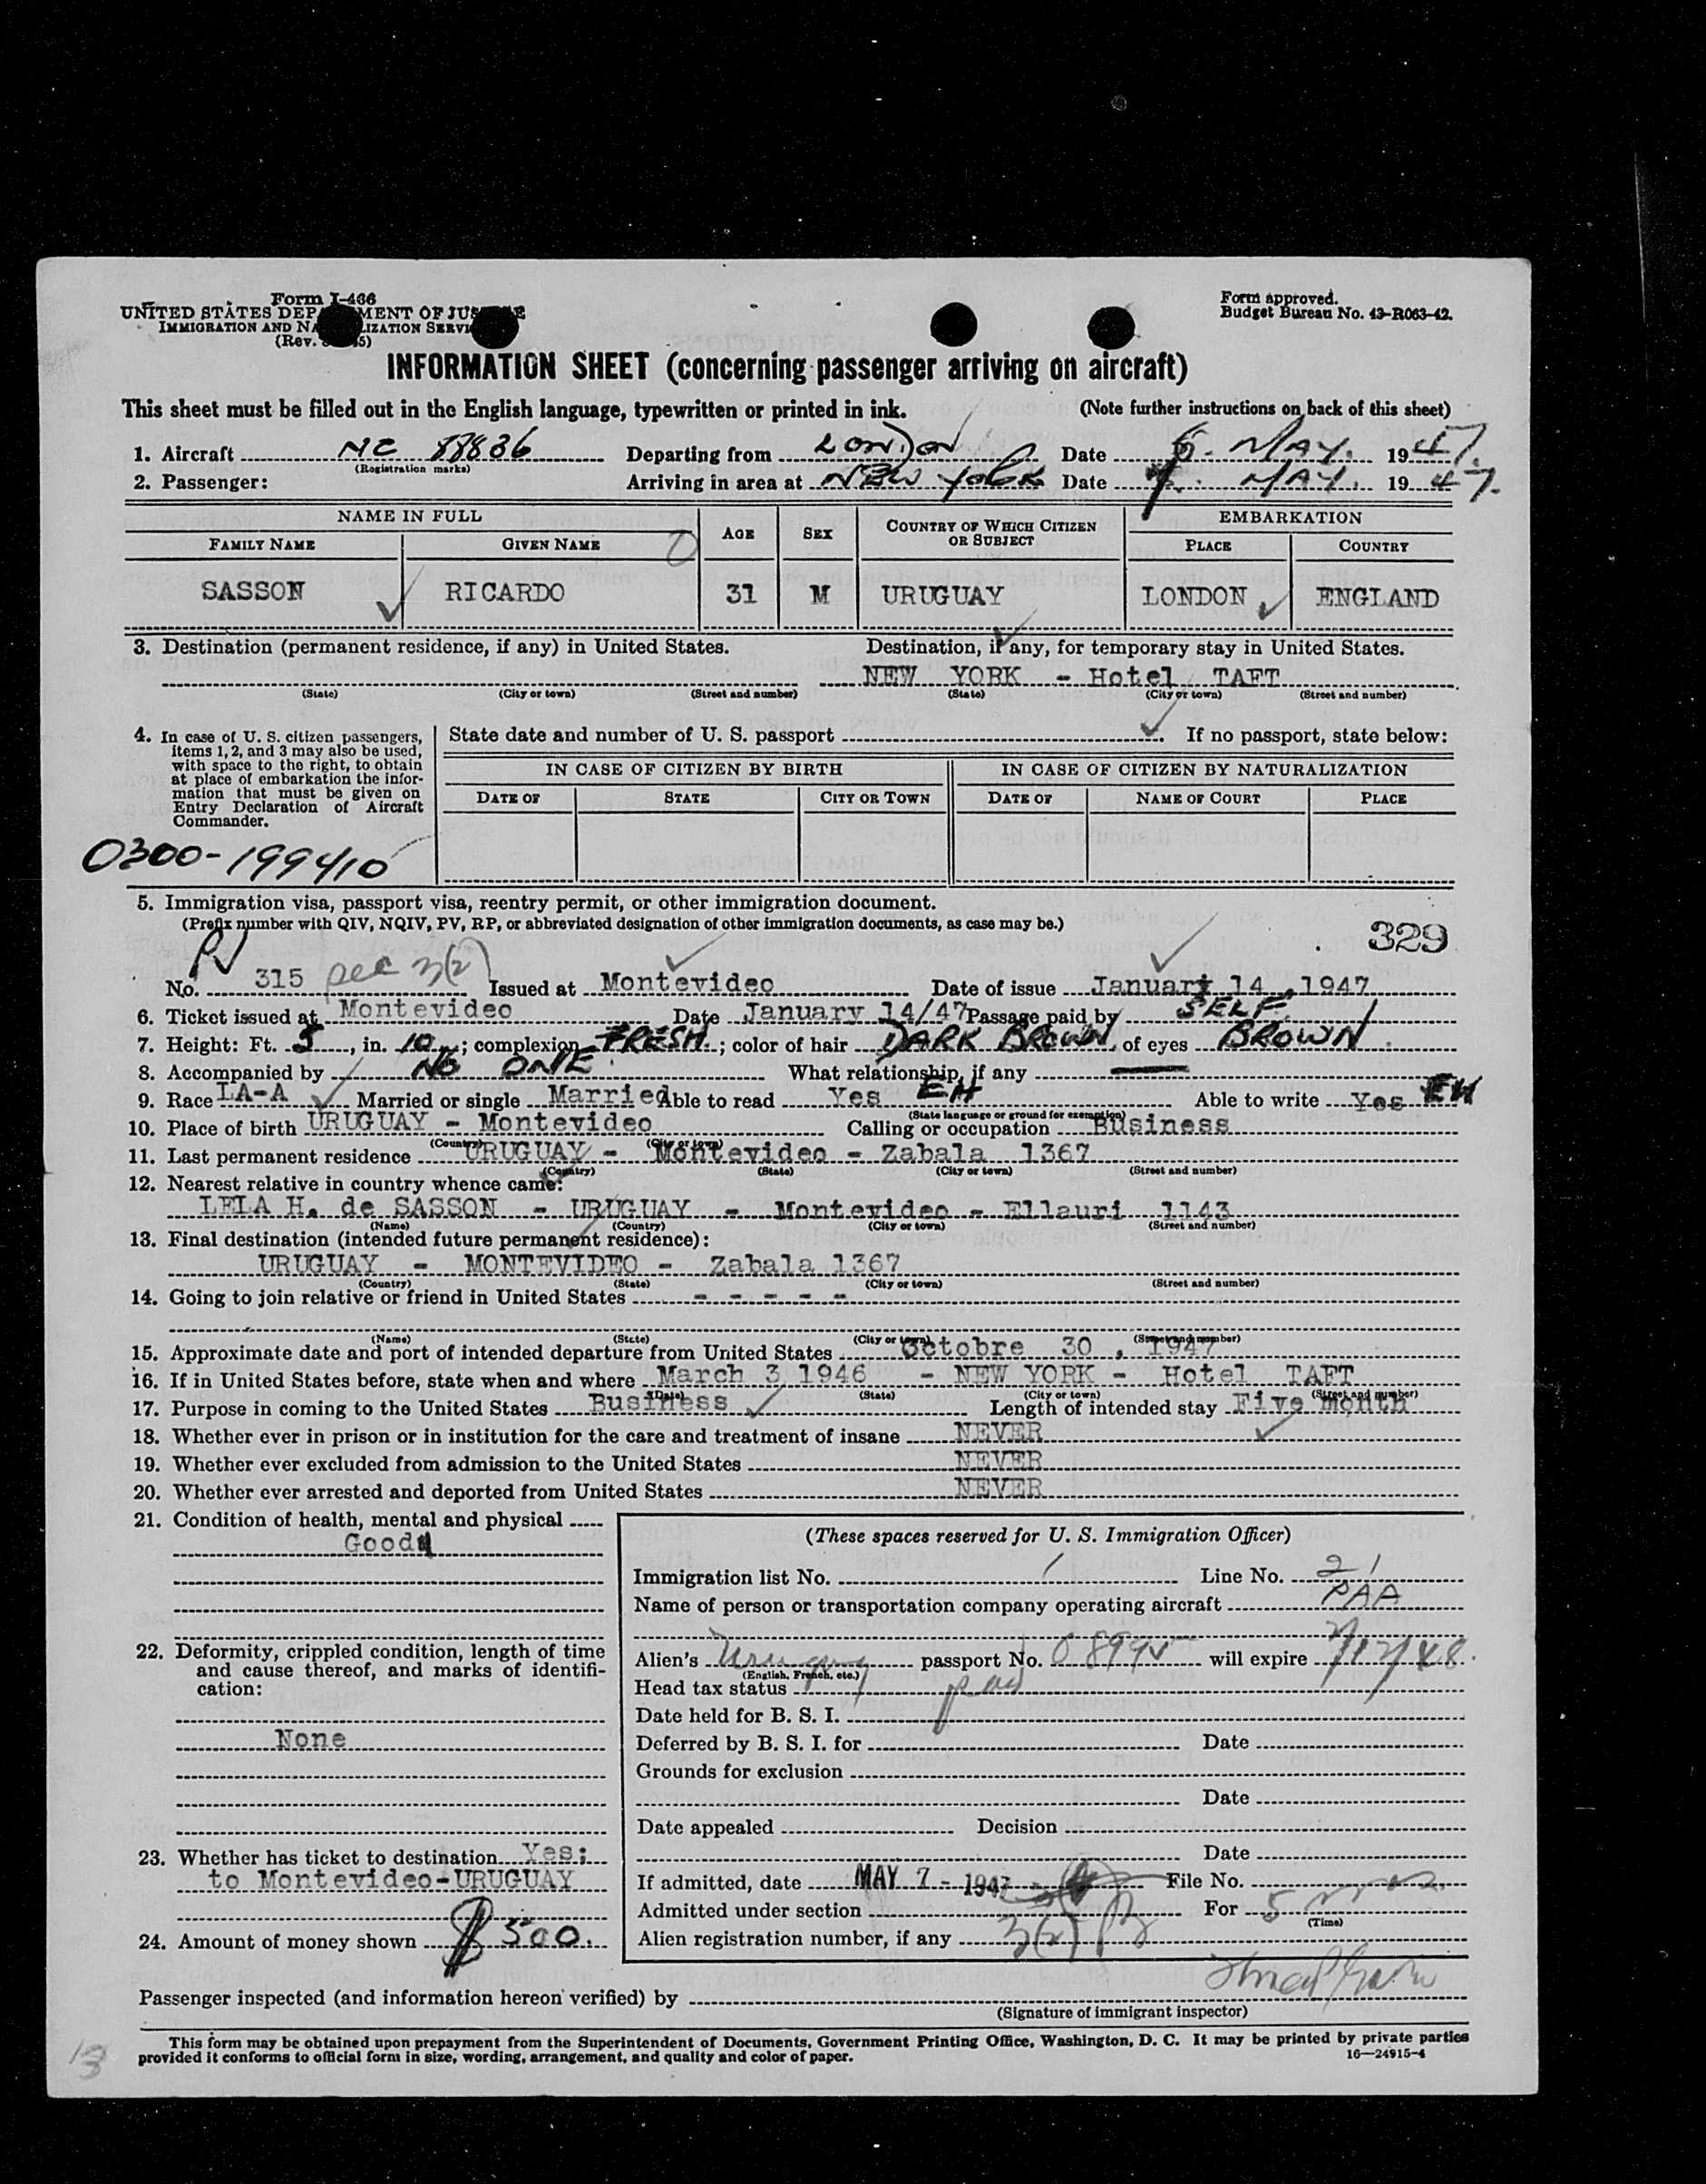 Form I-466
UNITED STATES DEPARTMENT OF JUSTICE
IMMIGRATION AND NATURALIZATION SERVICE
(Rev.
Form approved.
Budget Bureau No. 43-R063-42.
INFORMATION SHEET (concerning passenger arriving on aircraft)
This sheet must be filled out in the English language, typewritten or printed in ink. (Note further instructions on back of this sheet)
1. Aircraft NC 88836 Departing from LONDON Date 6. MAY. 1947.
(Registration marks)
2. Passenger: Arriving in area at NEW YORK Date 7. MAY. 1947.
NAME IN FULL AGE SEX COUNTRY OF WHICH CITIZEN OR SUBJECT EMBARKATION
FAMILY NAME GIVEN NAME PLACE COUNTRY
SASSON RICARDO 31 M URUGUAY LONDON ENGLAND
3. Destination (permanent residence, if any) in United States. Destination, if any, for temporary stay in United States.
NEW YORK - Hotel TAFT
(State) (City or town) (Street and number) (State) (City or town) (Street and number)
4. In case of U. S. citizen passengers, items 1, 2, and 3 may also be used, with space to the right, to obtain at place of embarkation the information that must be given on Entry Declaration of Aircraft Commander.
State date and number of U. S. passport If no passport, state below:
IN CASE OF CITIZEN BY BIRTH IN CASE OF CITIZEN BY NATURALIZATION
DATE OF STATE CITY OR TOWN DATE OF NAME OF COURT PLACE
0300-199410
5. Immigration visa, passport visa, reentry permit, or other immigration document.
(Prefix number with QIV, NQIV, PV, RP, or abbreviated designation of other immigration documents, as case may be.)
329
PV
No. 315 sec 3(2) Issued at Montevideo Date of issue January 14, 1947
6. Ticket issued at Montevideo Date January 14/47 Passage paid by SELF
7. Height: Ft. 5, in. 10; complexion FRESH; color of hair DARK BROWN of eyes BROWN
8. Accompanied by NO ONE What relationship, if any —
9. Race LA-A Married or single Married Able to read Yes EH Able to write Yes EH
(State language or ground for exemption)
10. Place of birth URUGUAY - Montevideo Calling or occupation Business
(Country) (City or town)
11. Last permanent residence URUGUAY - Montevideo - Zabala 1367
(Country) (State) (City or town) (Street and number)
12. Nearest relative in country whence came:
LELA H. de SASSON - URUGUAY - Montevideo - Ellauri 1143
(Name) (Country) (City or town) (Street and number)
13. Final destination (intended future permanent residence):
URUGUAY - MONTEVIDEO - Zabala 1367
(Country) (State) (City or town) (Street and number)
14. Going to join relative or friend in United States - - - - -
(Name) (State) (City or town) (Street and number)
15. Approximate date and port of intended departure from United States Octobre 30, 1947
16. If in United States before, state when and where March 3 1946 - NEW YORK - Hotel TAFT
(Date) (State) (City or town) (Street and number)
17. Purpose in coming to the United States Business Length of intended stay Five month
18. Whether ever in prison or in institution for the care and treatment of insane NEVER
19. Whether ever excluded from admission to the United States NEVER
20. Whether ever arrested and deported from United States NEVER
21. Condition of health, mental and physical
Good
22. Deformity, crippled condition, length of time and cause thereof, and marks of identification:
None
23. Whether has ticket to destination Yes;
to Montevideo-URUGUAY
24. Amount of money shown $ 500.
(These spaces reserved for U. S. Immigration Officer)
Immigration list No. 1 Line No. 21
Name of person or transportation company operating aircraft PAA
Alien's Uruguay passport No. will expire
(English, French, etc.)
Head tax status
Date held for B. S. I.
Deferred by B. S. I. for Date
Grounds for exclusion
Date
Date appealed Decision
Date
If admitted, date MAY 7 - 1947 File No.
Admitted under section For 5 mos.
(Time)
Alien registration number, if any 3(2)
Passenger inspected (and information hereon verified) by
(Signature of immigrant inspector)
This form may be obtained upon prepayment from the Superintendent of Documents, Government Printing Office, Washington, D. C. It may be printed by private parties
provided it conforms to official form in size, wording, arrangement, and quality and color of paper. 16—24915-4
13